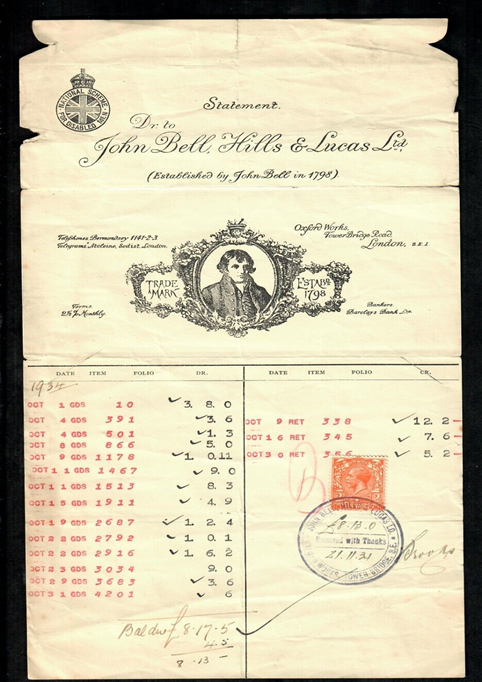 NATIONAL SCHEME
FOR DISABLED MEN
Statement.
Dr. to
John Bell, Hills & Lucas Ltd.
(Established by John Bell in 1798)
Telephones Bermondsey 1141-2-3
Telegrams London.
Oxford Works,
Tower Bridge Road,
London, S.E.1
TRADE MARK
ESTABD 1798
Terms
2½% Monthly.
Bankers
Barclays Bank Ltd
DATE ITEM FOLIO DR. DATE ITEM FOLIO CR.
1934
OCT 1 GDS 10 3. 8. 0
OCT 4 GDS 391 3. 6
OCT 4 GDS 501 1. 3
OCT 8 GDS 866 5. 0
OCT 9 GDS 1178 1. 0.11
OCT 11 GDS 1467 9. 0
OCT 11 GDS 1513 8. 3
OCT 15 GDS 1911 4. 9
OCT 19 GDS 2687 1. 2. 4
OCT 22 GDS 2792 1. 0. 1
OCT 22 GDS 2916 1. 6. 2
OCT 25 GDS 3034 9. 0
OCT 29 GDS 3683 3. 6
OCT 31 GDS 4201 6
OCT 9 RET 338 12. 2
OCT 16 RET 345 7. 6
OCT 30 RET 356 5. 2
JOHN BELL, HILLS & LUCAS LD.
£8.13.0
Received with Thanks
TOWER BRIDGE, S.E.
8-17-5
4-5
8-13-